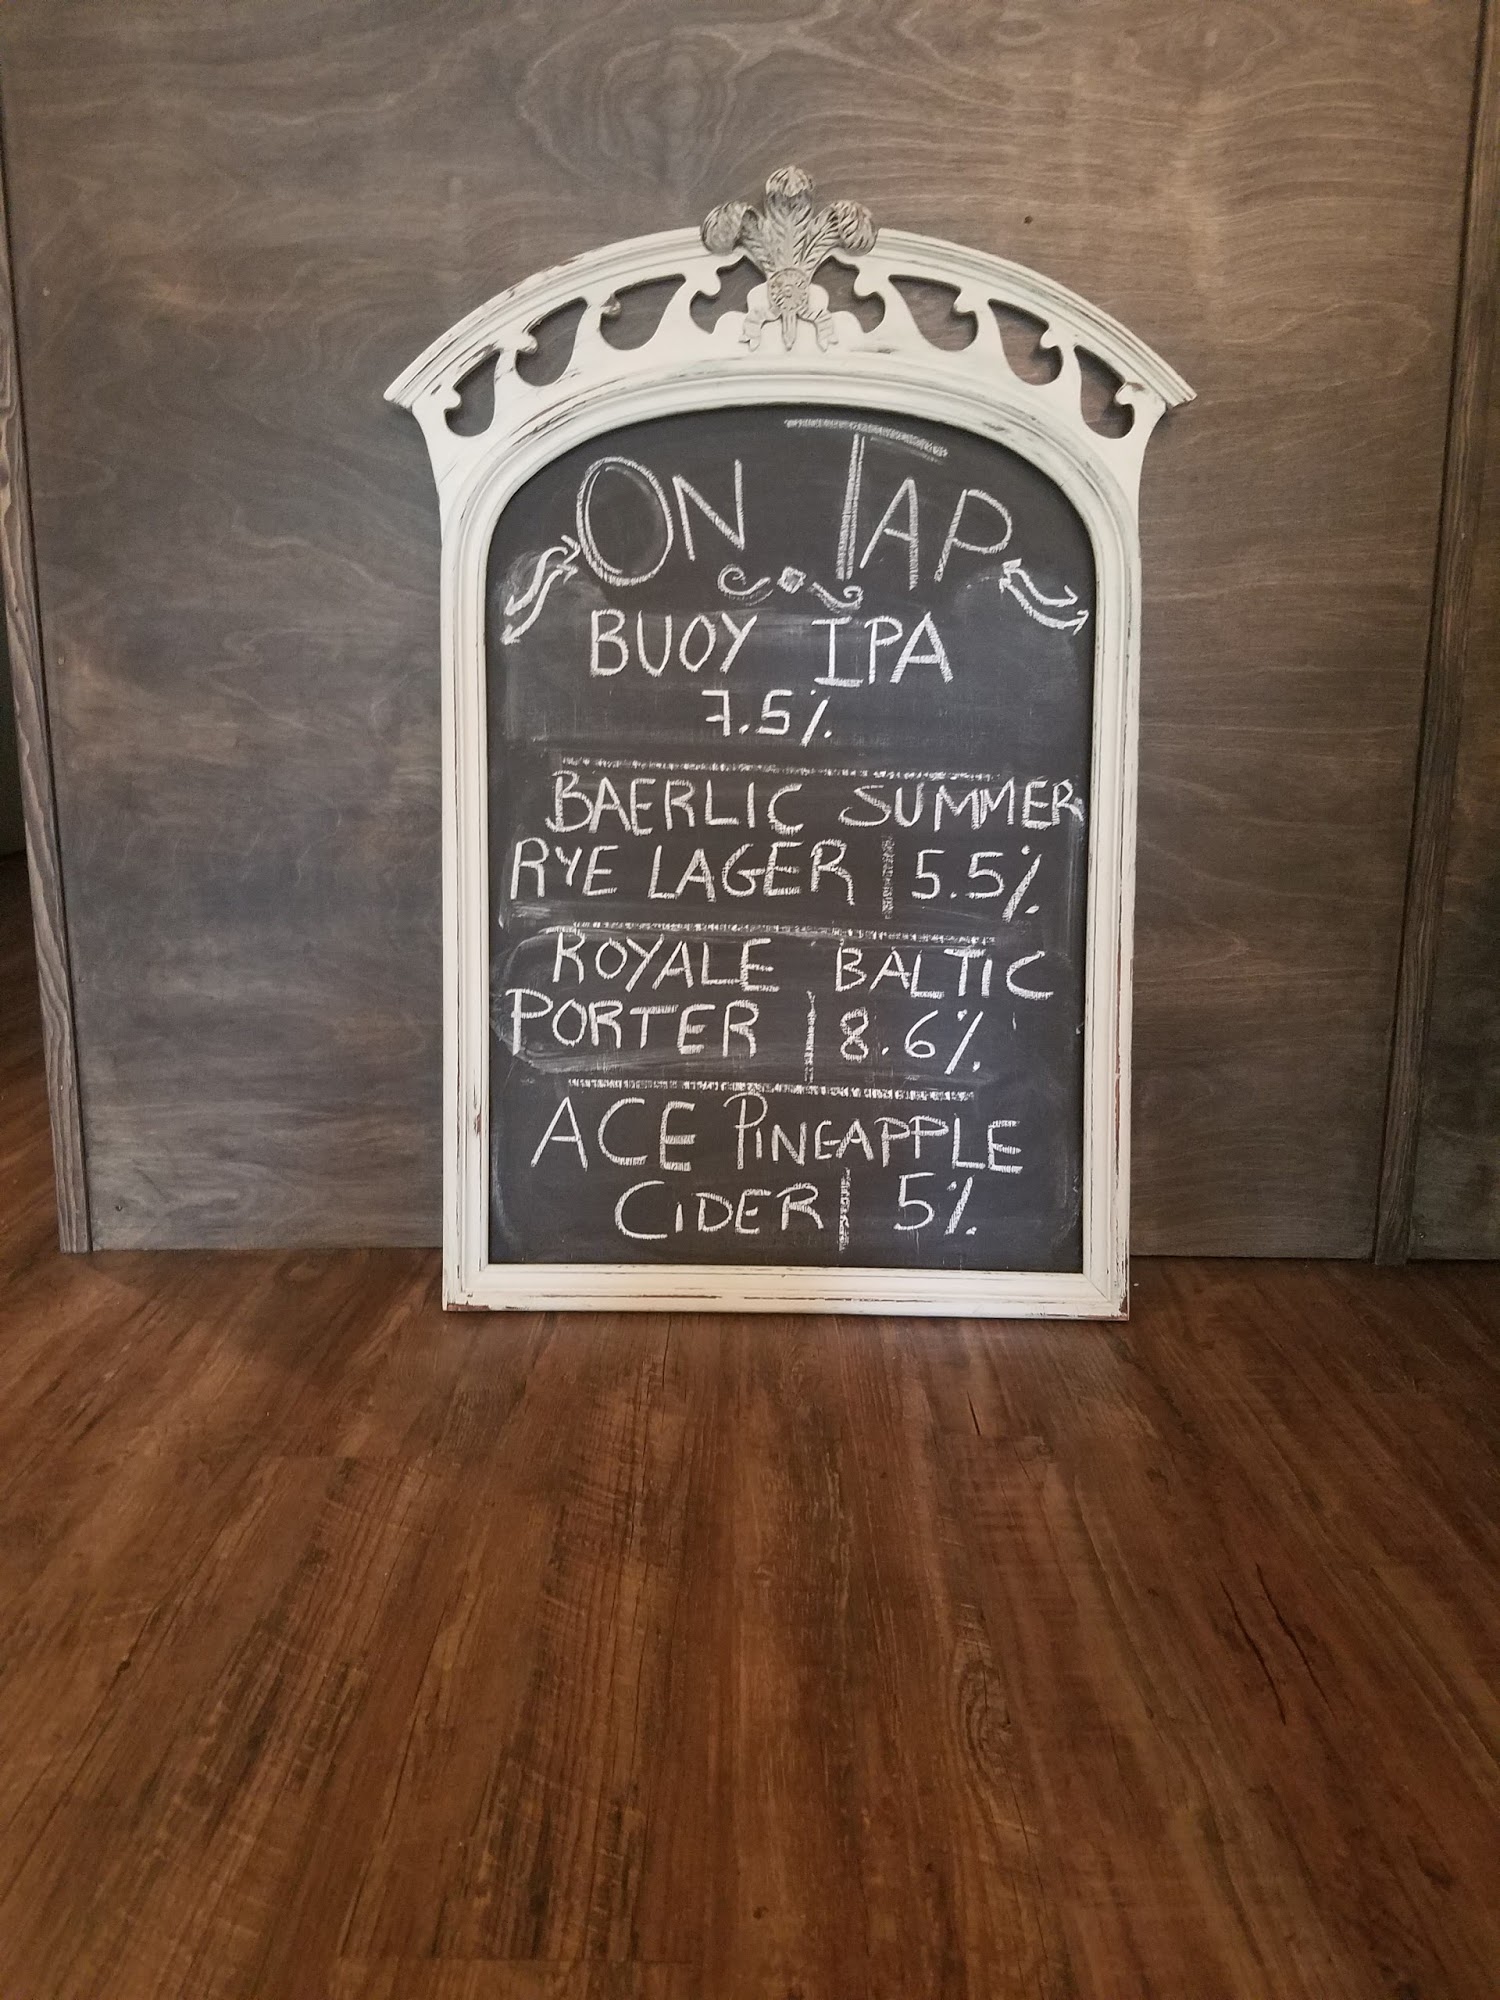 ON TAP
BUOY IPA
7.5%
BAERLIC SUMMER
RYE LAGER | 5.5%
ROYALE BALTIC
PORTER | 8.6%
ACE PINEAPPLE
CIDER | 5%